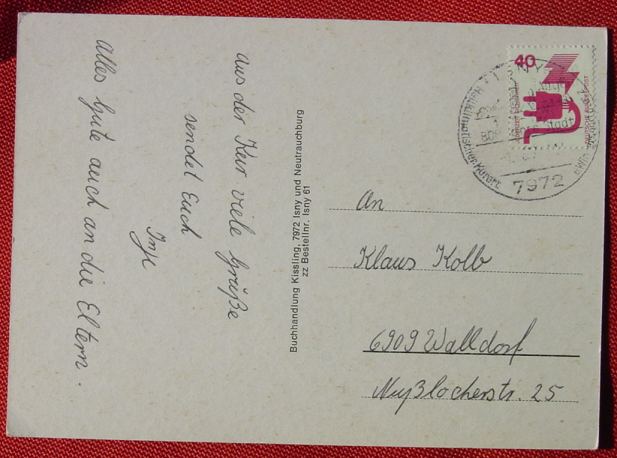 aus der Kur viele Grüße
sendet Euch
Inge
Alles Gute auch an die Eltern.
Buchhandlung Kissling, 7972 Isny und Neutrauchburg
zz Bestellnr. Isny 61
40
7972
Heilklimatischer Kurort
An
Klaus Kolb
6909 Walldorf
Nußlocherstr. 25